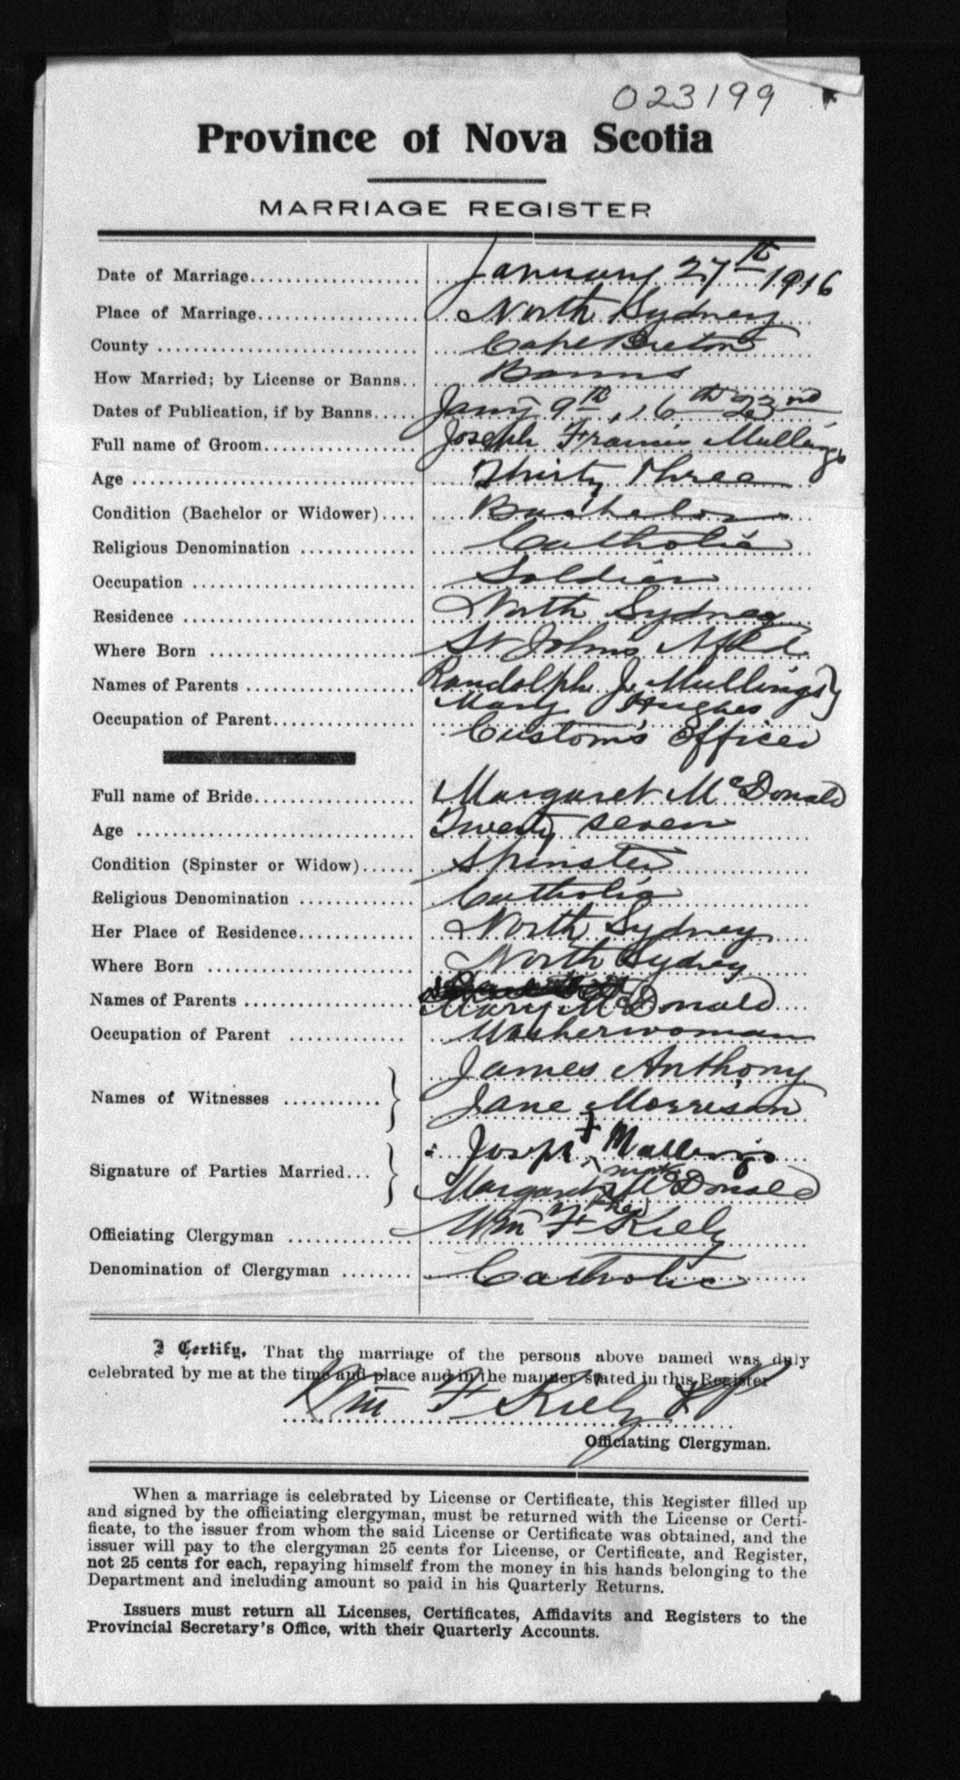 023199
Province of Nova Scotia
MARRIAGE REGISTER
Date of Marriage January 27th 1916
Place of Marriage North Sydney
County Cape Breton
How Married; by License or Banns Banns
Dates of Publication, if by Banns Jany 9th, 16th 23nd
Full name of Groom Joseph Francis Mullings
Age Thirty three
Condition (Bachelor or Widower) Bachelor
Religious Denomination Catholic
Occupation Soldier
Residence North Sydney
Where Born St Johns Nfld.
Names of Parents Randolph J. Mullings }
Mary Hughes
Occupation of Parent Custom's Officer
Full name of Bride Margaret McDonald
Age Twenty seven
Condition (Spinster or Widow) Spinster
Religious Denomination Catholic
Her Place of Residence North Sydney
Where Born North Sydney
Names of Parents Mary McDonald
Occupation of Parent Washerwoman
Names of Witnesses } James Anthony
Jane Morrison
Signature of Parties Married } Joseph Mullings
Margaret McDonald
her
Officiating Clergyman Wm F Kiely
Denomination of Clergyman Catholic
I Certify, That the marriage of the persons above named was duly
celebrated by me at the time and place and in the manner stated in this Register
Wm F Kiely PP
Officiating Clergyman.
When a marriage is celebrated by License or Certificate, this Register filled up
and signed by the officiating clergyman, must be returned with the License or Certi-
ficate, to the issuer from whom the said License or Certificate was obtained, and the
issuer will pay to the clergyman 25 cents for License, or Certificate, and Register,
not 25 cents for each, repaying himself from the money in his hands belonging to the
Department and including amount so paid in his Quarterly Returns.
Issuers must return all Licenses, Certificates, Affidavits and Registers to the
Provincial Secretary's Office, with their Quarterly Accounts.